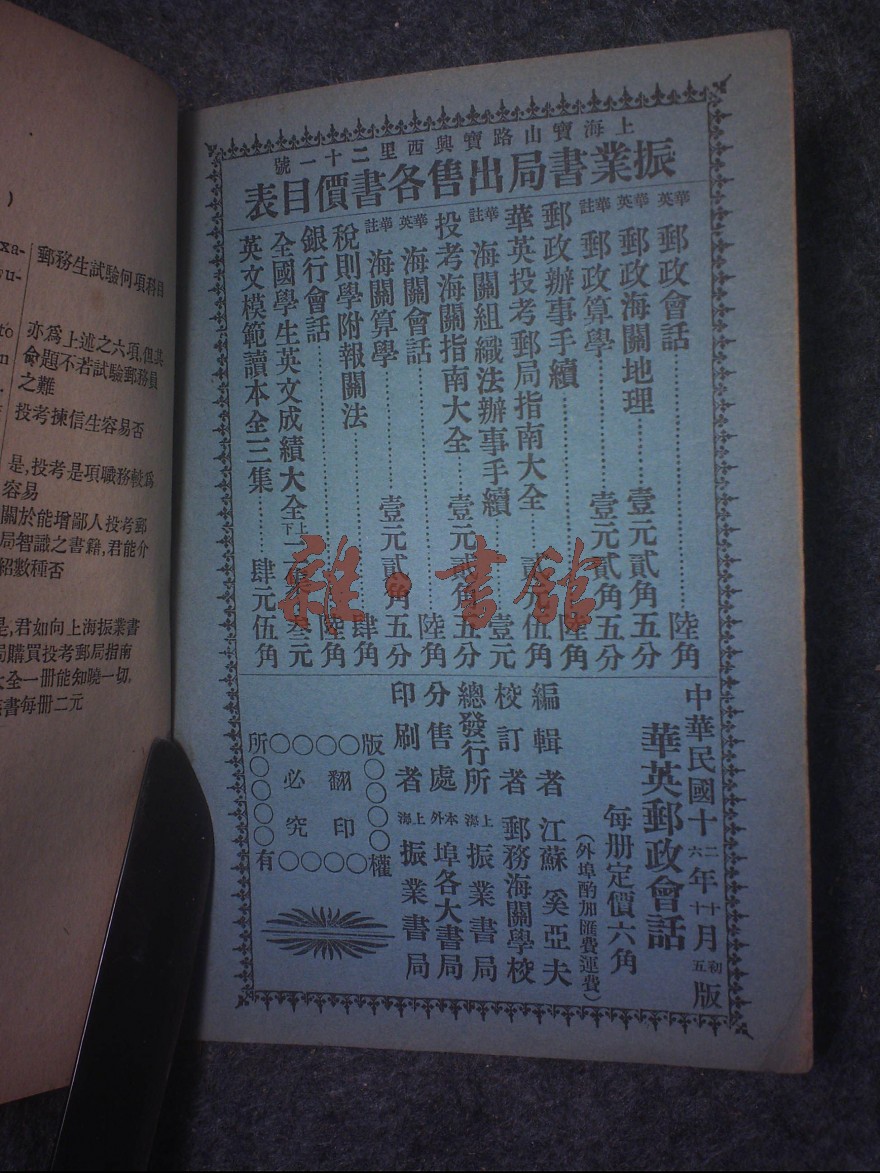 上海寶山路寶興西里二十一號
振業書局出售各書價目表
華英 郵政會話 陸角
華英 郵政海關地理 壹元貳角五分
華註 郵政算學 壹元貳角五分
郵政辦事手續 陸角
華英投考郵局指南大全 伍角
華註 海關組織法辦事手續 壹元
投考海關指南大全 壹元貳角五分
華英 海關會話 陸角
華註 海關算學 壹元貳角五分
稅則學附報關法 肆角
銀行會話 陸角
全國學生英文成績大全上下二集 叁元
英文模範讀本全三集 肆元伍角
中華民國十二六年十十月初五版
華英郵政會話
每册定價六角
(外埠酌加匯費運費)
編輯者 江蘇 奚亞夫
校訂者 郵務海關學校
總發行所 上海 振業書局
分售處 本外 埠各大書局
印刷者 上海 振業書局
版〇〇〇〇權
〇〇翻印〇〇
〇〇必究〇〇
所〇〇〇〇有
雜·書館
)
xa-
yu-
to
n
郵務生試驗何項科目
亦爲上述之六項,但其
命題不若試驗郵務員
之難
投考揀信生容易否
是,投考是項職務較爲
容易
關於能增鄙人投考郵
局智識之書籍,君能介
紹數種否
是,君如向上海振業書
局購買投考郵局指南
大全一册能知曉一切,
書每册二元